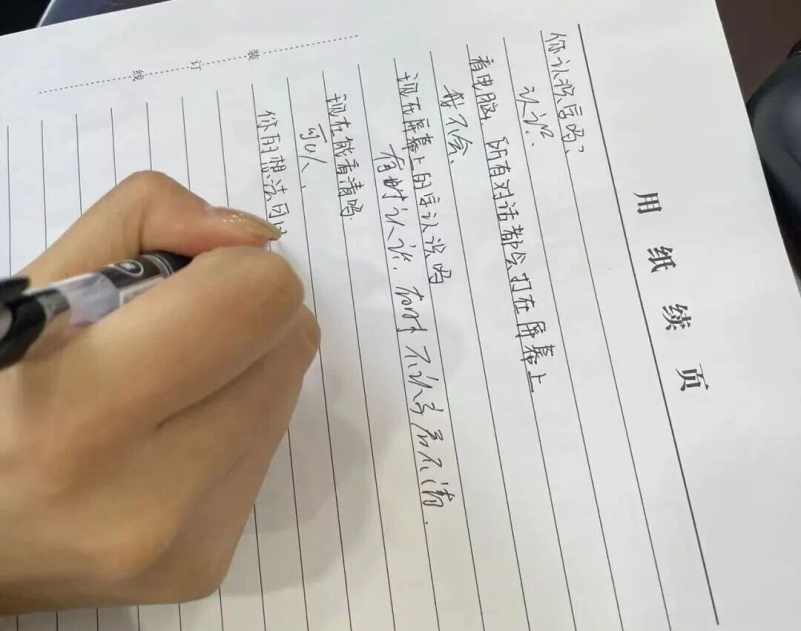 用纸续页
你认识字吗?
认识.
看电脑,所有对话都会打在屏幕上
我不会.
现在屏幕上的字认识吗
有时认识,有时不认识看不清.
现在能看清吗
可以,
你的想法可以
装 订 线